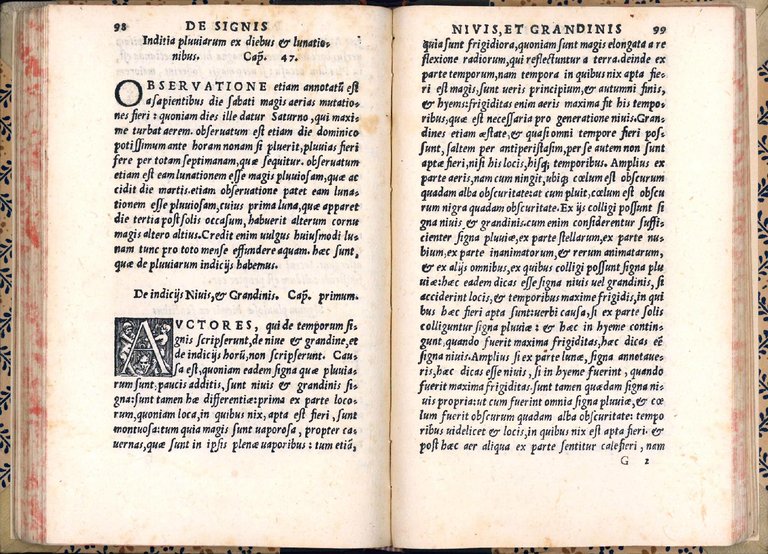 98
DE SIGNIS
Inditia pluuiarum ex diebus & lunatio-
nibus. Cap. 47.
OBSERVATIONE etiam annotatũ est
a sapientibus die sabati magis aerias mutatio-
nes fieri: quoniam dies ille datur Saturno, qui maxi-
me turbat aerem. obseruatum est etiam die dominico
potissimum ante horam nonam si pluerit, pluuias fieri
fere per totam septimanam, quæ sequitur. obseruatum
etiam est eam lunationem esse magis pluuiosam, quæ ac
cidit die martis. etiam obseruatione patet eam luna-
tionem esse pluuiosam, cuius prima luna, quæ apparet
die tertia post solis occasum, habuerit alterum cornu
magis altero altius. Credit enim uulgus huiusmodi lu-
nam tunc pro toto mense effundere aquam. hæc sunt,
quæ de pluuiarum indicijs habemus.
De indicijs Niuis, & Grandinis. Cap. primum.
AVCTORES, qui de temporum si-
gnis scripserunt, de niue & grandine, et
de indicijs horũ, non scripserunt. Cau-
sa est, quoniam eadem signa quæ pluuia-
rum sunt: paucis additis, sunt niuis & grandinis si-
gna: sunt tamen hæ differentiæ: prima ex parte loco-
rum, quoniam loca, in quibus nix, apta est fieri, sunt
montuosa: tum quia magis sunt uaporosa, propter ca-
uernas, quæ sunt in ipsis plenæ uaporibus: tum etiã,
NIVIS, ET GRANDINIS
99
quia sunt frigidiora, quoniam sunt magis elongata a re
flexione radiorum, qui reflectuntur a terra. deinde ex
parte temporum, nam tempora in quibus nix apta fie-
ri est magis, sunt ueris principium, & autumni finis,
& hyems: frigiditas enim aeris maxima fit his tempo-
ribus, quæ est necessaria pro generatione niuis. Gran-
dines etiam æstate, & quasi omni tempore fieri pos-
sunt, saltem per antiperistasim, per se autem non sunt
aptæ fieri, nisi his locis, hisq; temporibus. Amplius ex
parte aeris, nam cum ningit, ubiq; cœlum est obscurum
quadam alba obscuritate: at cum pluit, cœlum est obscu
rum nigra quadam obscuritate. Ex ijs colligi possunt si
gna niuis, & grandinis. cum enim considerentur suffi-
cienter signa pluuiæ, ex parte stellarum, ex parte nu-
bium, ex parte inanimatorum, & rerum animatarum,
& ex alijs omnibus, ex quibus colligi possunt signa plu
uiæ: hæc eadem dicas esse signa niuis uel grandinis, si
acciderint locis, & temporibus maxime frigidis, in qui
bus hæc fieri apta sunt: uerbi causa, si ex parte solis
colliguntur signa pluuiæ: & hæc in hyeme contin-
gunt, quando fuerit maxima frigiditas, hæc dicas eẽ
signa niuis. Amplius si ex parte lunæ, signa annotaue-
ris, hæc dicas esse niuis, si in hyeme fuerint, quando
fuerit maxima frigiditas. sunt tamen quædam signa ni-
uis propria: ut cum fuerint omnia signa pluuiæ, & cœ
lum fuerit obscurum quadam alba obscuritate: tempo
ribus uidelicet & locis, in quibus nix est apta fieri. &
post hæc aer aliqua ex parte sentitur calefieri, nam
G 2